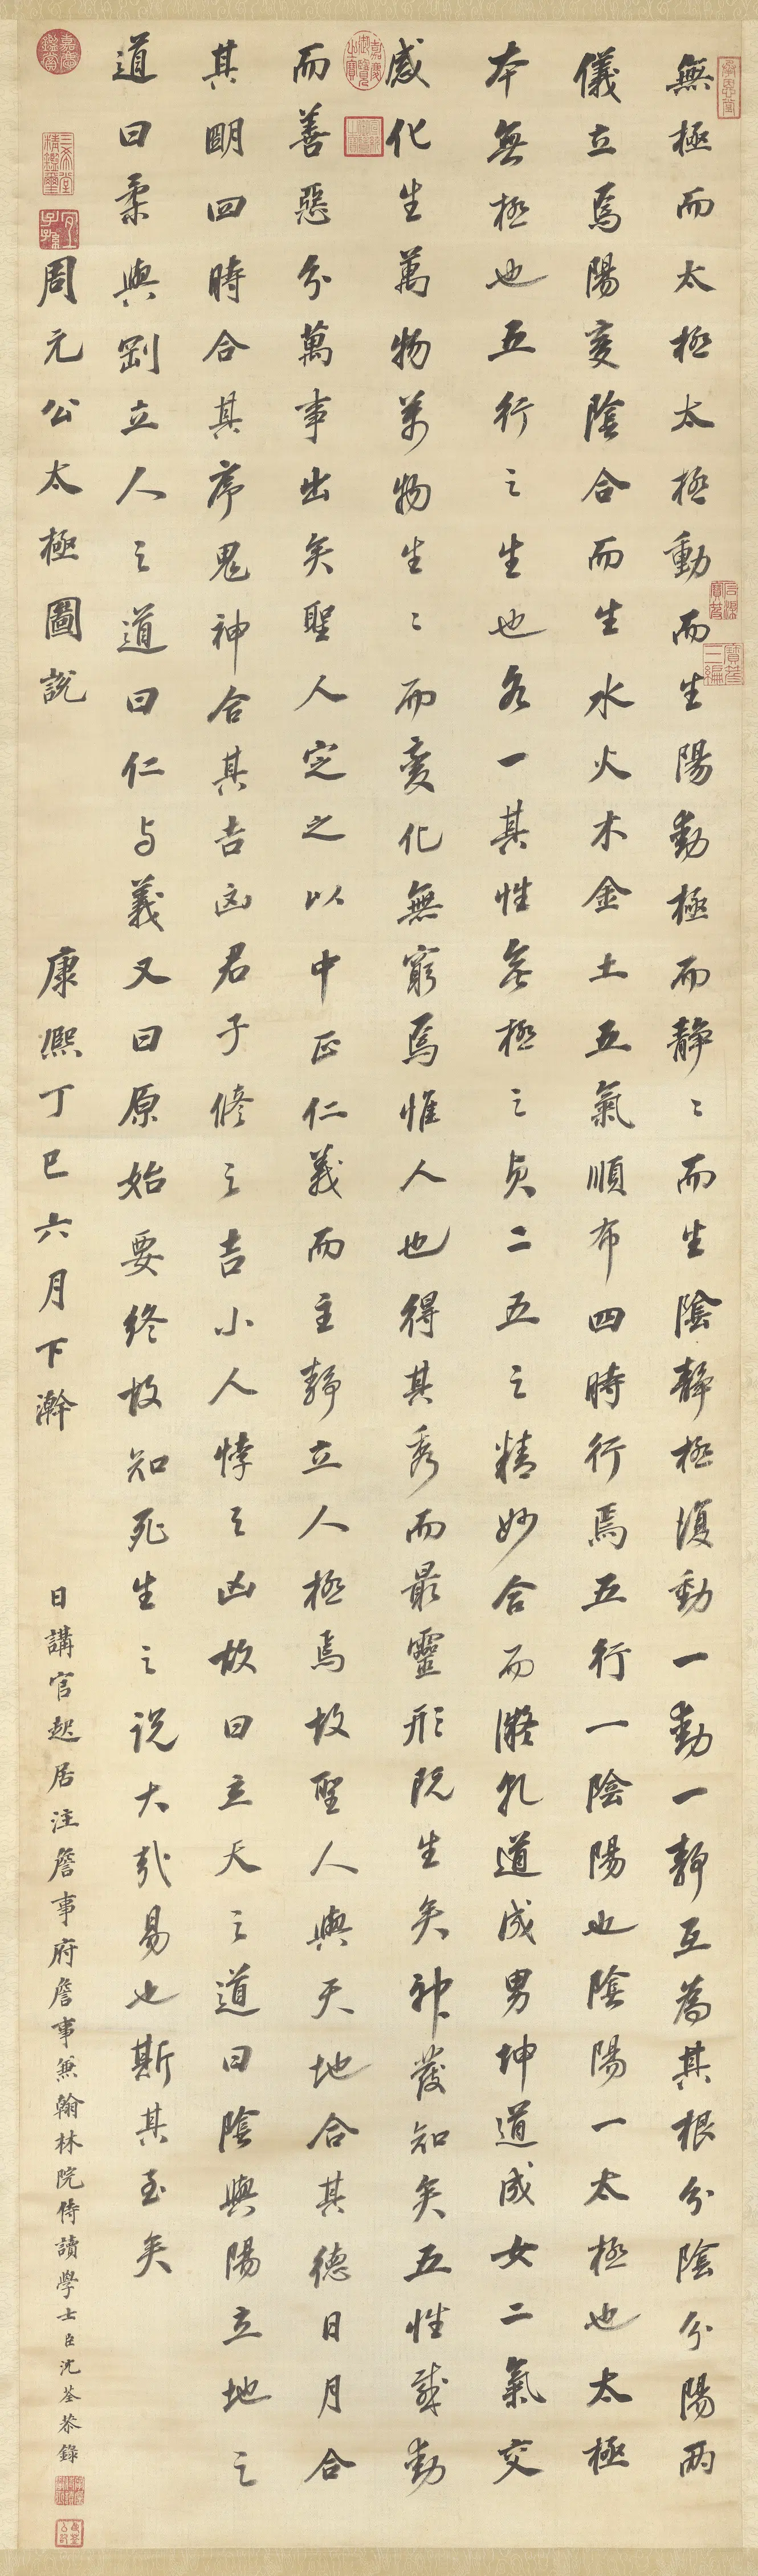 無極而太極太極動而生陽動極而静〻而生陰静極復動一動一静互為其根分陰分陽兩
儀立焉陽変陰合而生水火木金土五氣順布四時行焉五行一陰陽也陰陽一太極也太極
本無極也五行之生也各一其性無極之真二五之精妙合而凝乹道成男坤道成女二氣交
感化生萬物萬物生〻而變化無窮焉惟人也得其秀而最靈形既生矣神發知矣五性感動
而善惡分萬事出矣聖人定之以中正仁義而主静立人極焉故聖人與天地合其德日月合
其明四時合其序鬼神合其吉凶君子修之吉小人悖之凶故曰立天之道曰陰與陽立地之
道曰柔與剛立人之道曰仁与義又曰原始要終故知死生之説大哉易也斯其至矣
周元公太極圖說
康熙丁巳六月下澣
日講官起居注詹事府詹事兼翰林院侍讀學士臣沈荃恭錄
石渠寶笈
寶笈三編
嘉慶御覽之寶
嘉慶鑑賞
三希堂精鑑璽
宜子孫